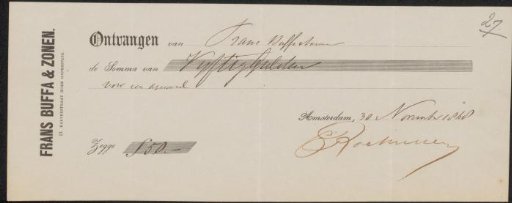 27
FRANS BUFFA & ZONEN.
Ontvangen van Frans Buffa & Zonen
de Somma van Vijftig Gulden
voor een aquarel
Amsterdam, 30 November 1868
Zegge f 50.-